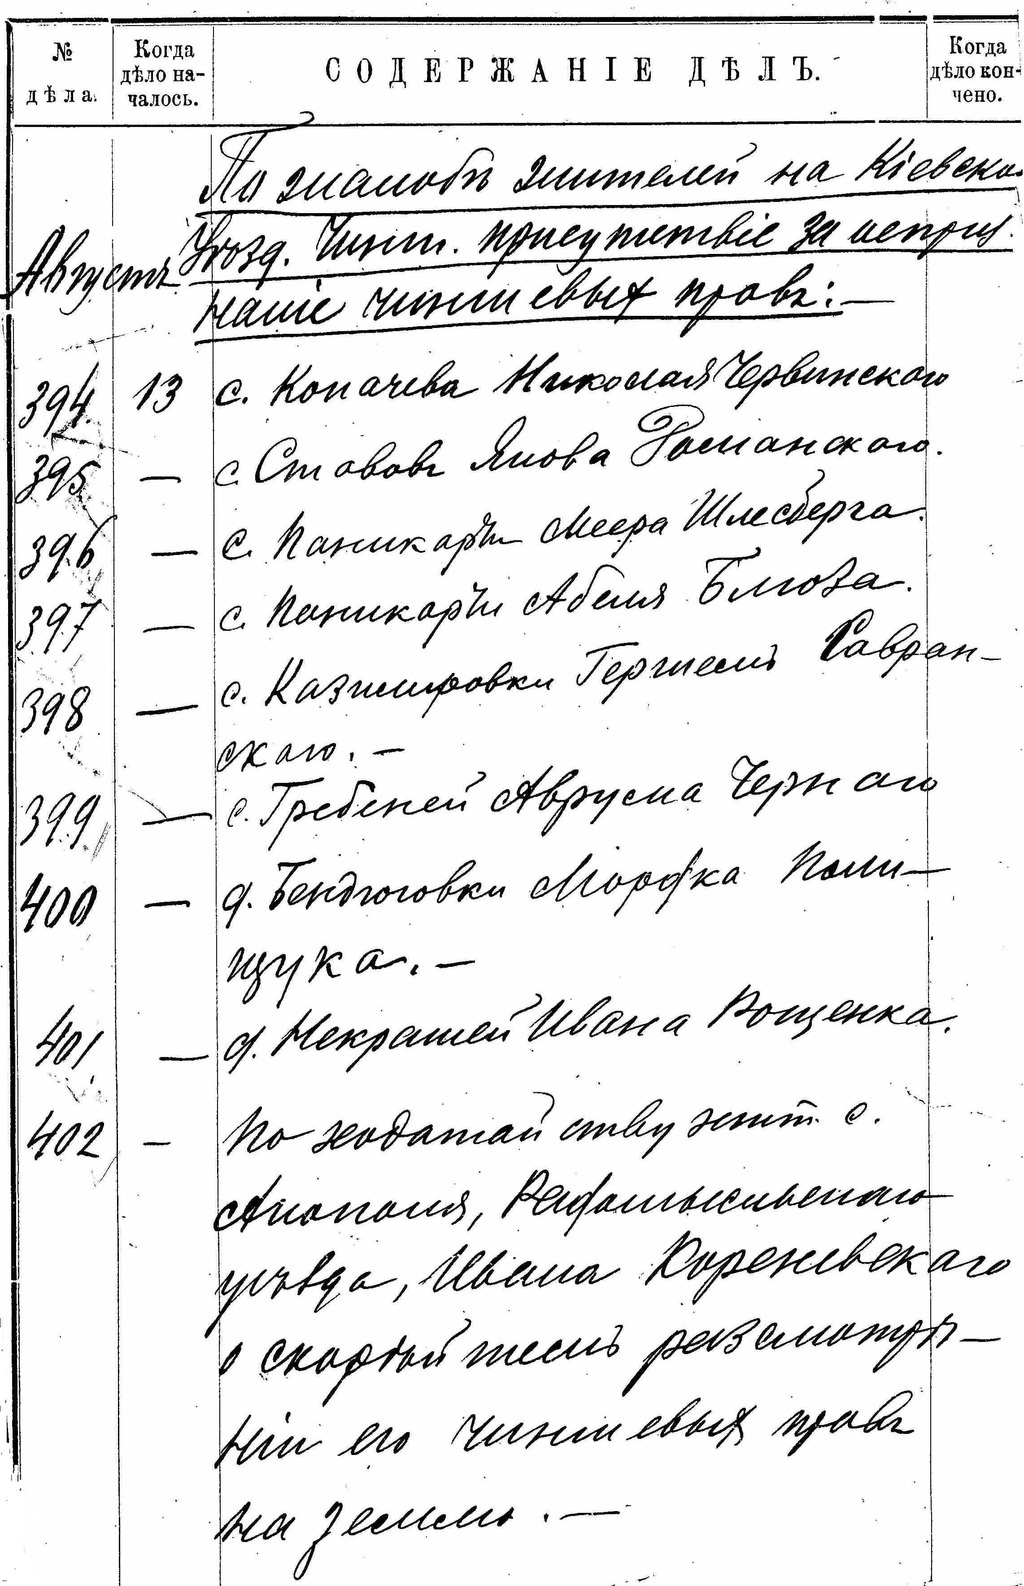 № дѣла.
Когда дѣло началось.
СОДЕРЖАНІЕ ДѢЛЪ.
Когда дѣло кончено.
По жалобѣ жителей на Кіевско
Уѣзд. Чинш. присутствіе за неприз.
Августъ
наніе чиншевыхъ правъ: —
394 13 с. Копачева Николая Червинского
395 — с. Ставовъ Якова Романского.
396 — с. Паникарчи Меера Шлесберга.
397 — с. Паникарчи Абеля Блюза.
398 — с. Казимировки Гершель Савран-
ского. —
399 — с. Гребеней Аврума Чернаго
400 — д. Бендюговки Марфка Поли-
щука. —
401 — д. Некрашей Ивана Рощенка.
402 — По ходатайству жит. с.
Анополя, Радомысльскаго
уѣзда, Ивана Кореневскаго
о скорѣйшемъ разсмотрѣ-
ніи его чиншевыхъ правъ
на землю. —